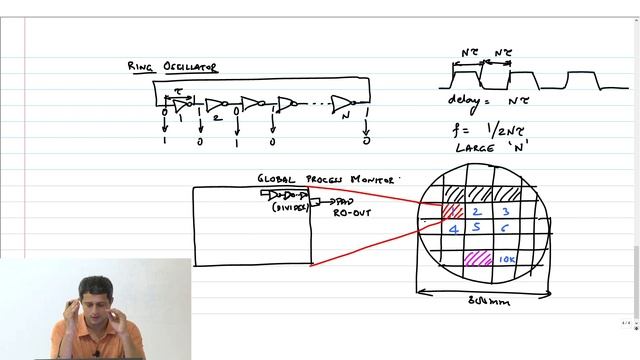 RING OSCILLATOR
τ
0 1 0 1 0 1
1 2 N
1 0 1 0 0
Nτ Nτ
delay = Nτ
f = 1/2Nτ
LARGE 'N'
GLOBAL PROCESS MONITOR
(DIVIDER) PAD
RO-OUT
1 2 3
4 5 6
10K
300mm
4/4